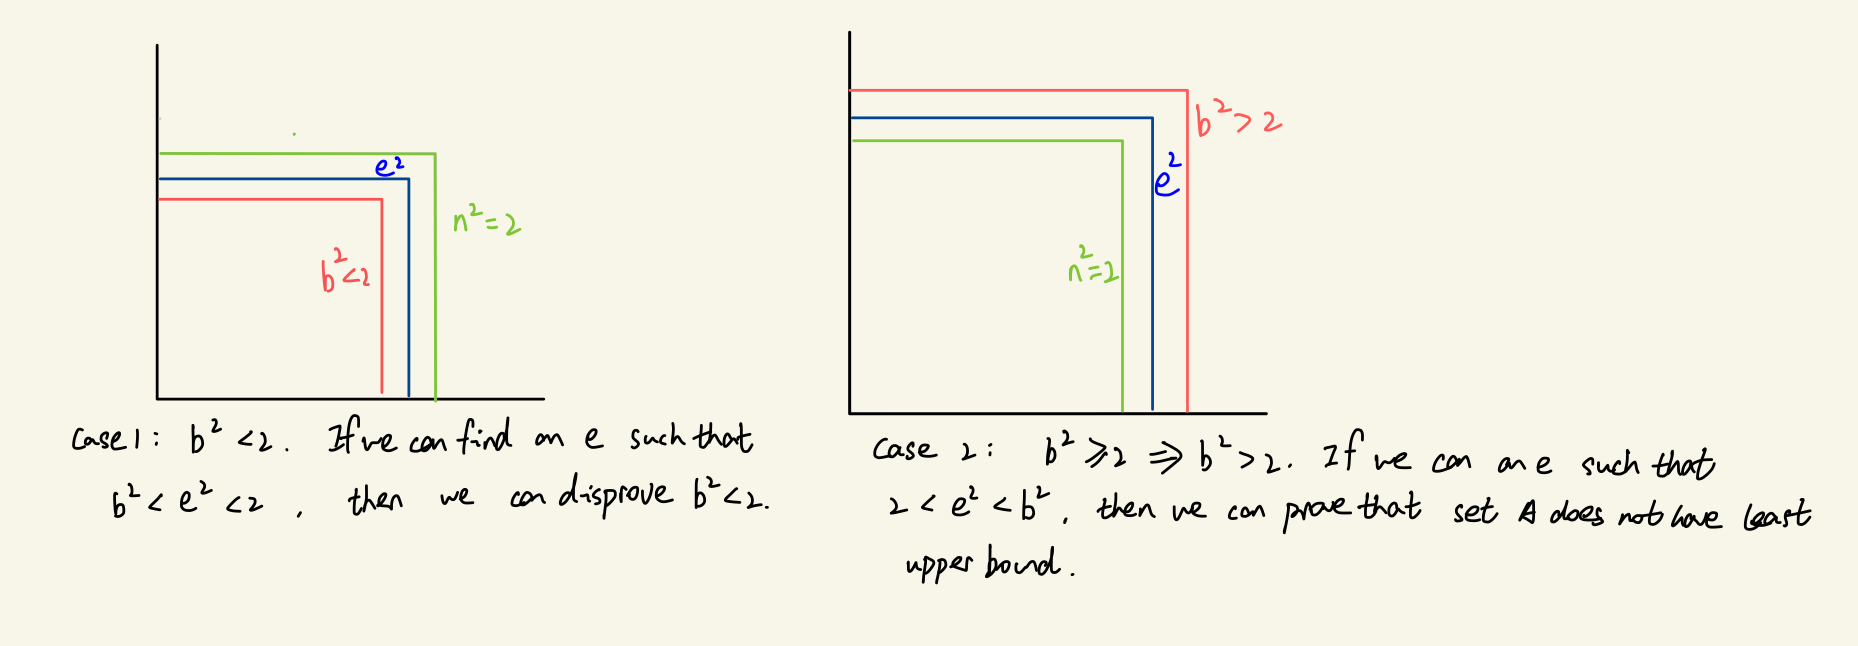 e²
n²=2
b²<2
Case 1: b² <2. If we can find an e such that
b² < e² <2, then we can disprove b²<2.
b²>2
e²
n²=2
Case 2: b² ⩾2 ⇒ b²>2. If we can an e such that
2 < e² < b², then we can prove that set A does not have least
upper bound.